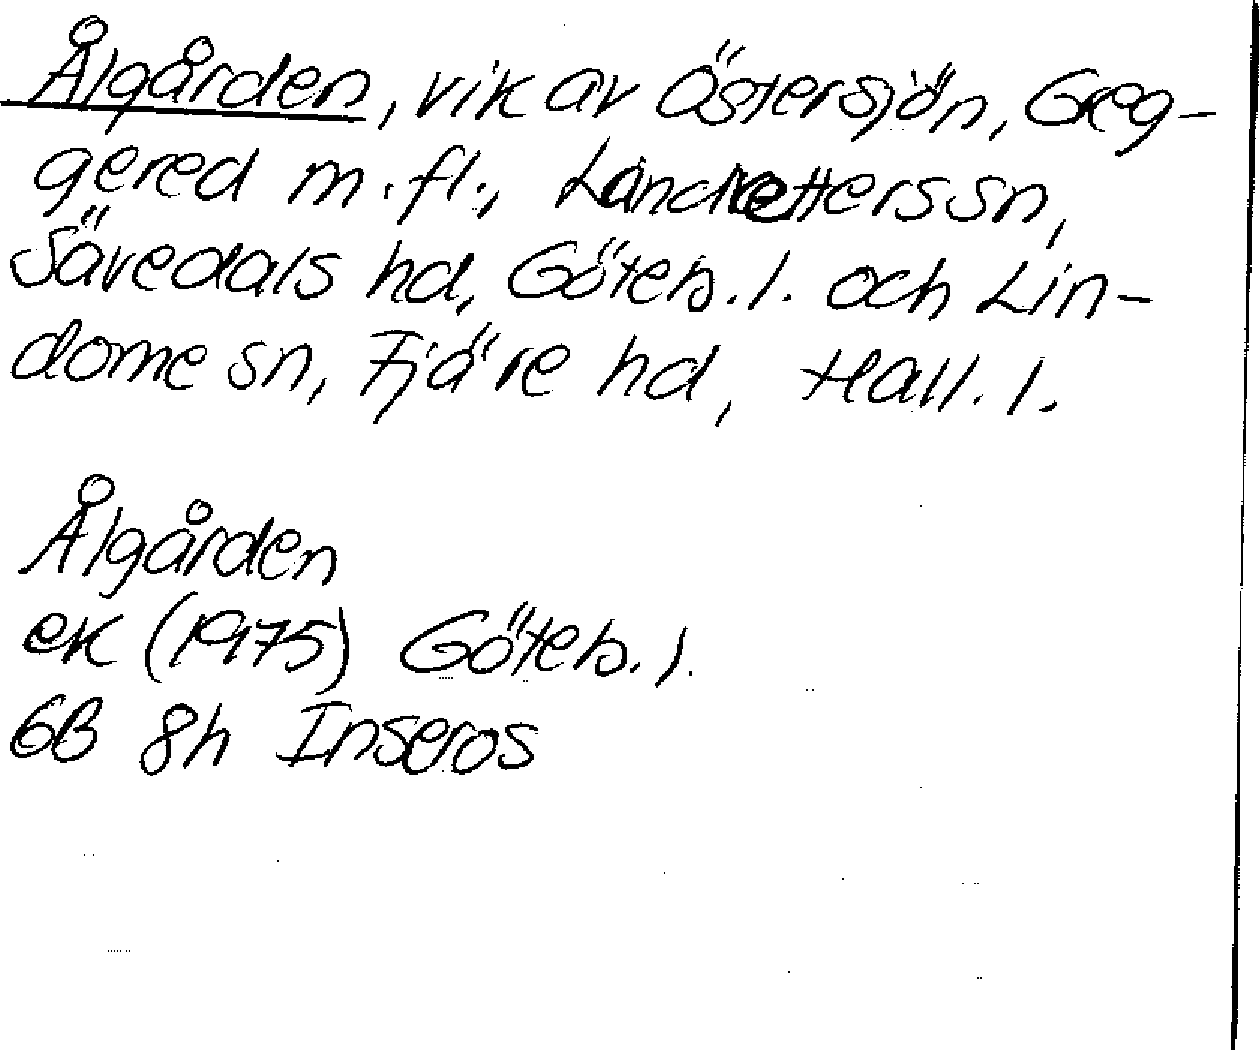 Ålgården, vik av Östersjön, Greg-
gered m.fl., Landvetters sn,
Sävedals hd, Göteb.l. och Lin-
dome sn, Fjäre hd, Hall.l.
Ålgården
ek (1975) Göteb.l.
6B 8h Inseros